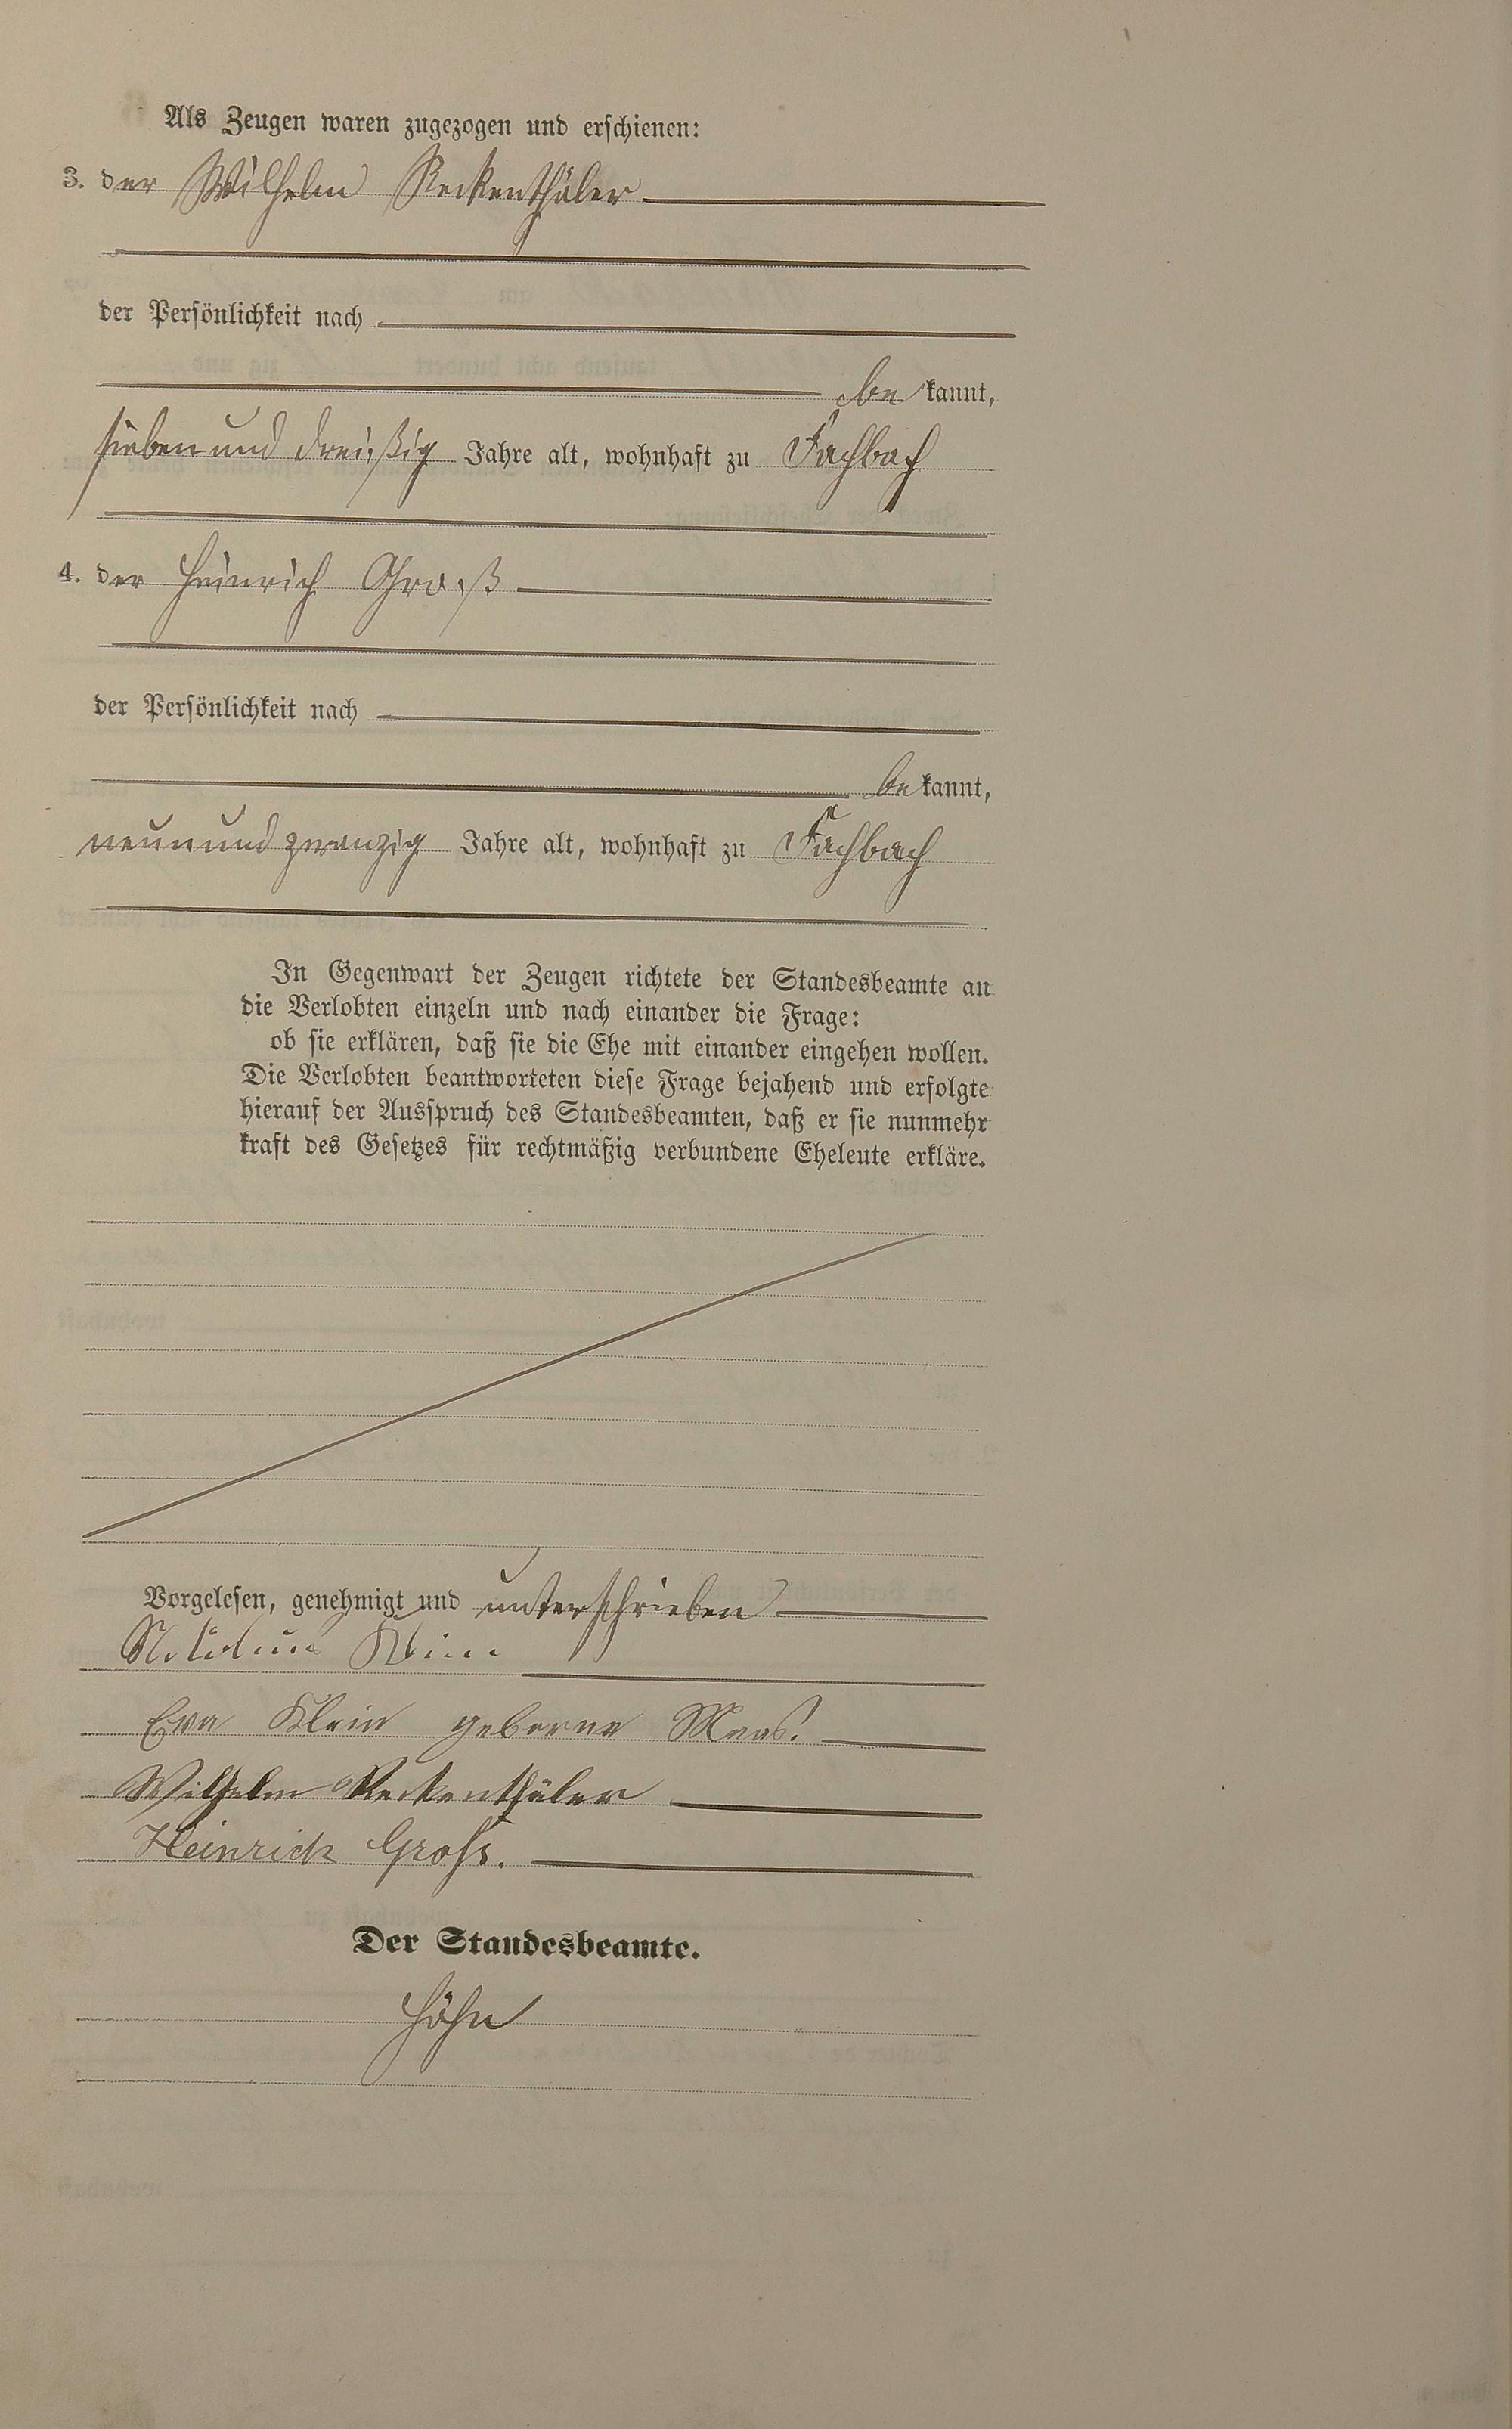 Als Zeugen waren zugezogen und erschienen:
3. der Wilhelm Reckenthäler
der Persönlichkeit nach
be kannt,
sieben und dreißig Jahre alt, wohnhaft zu Fachbach
4. der Heinrich Groß
der Persönlichkeit nach
be kannt,
neun und zwanzig Jahre alt, wohnhaft zu Fachbach
In Gegenwart der Zeugen richtete der Standesbeamte an
die Verlobten einzeln und nach einander die Frage:
ob sie erklären, daß sie die Ehe mit einander eingehen wollen.
Die Verlobten beantworteten diese Frage bejahend und erfolgte
hierauf der Ausspruch des Standesbeamten, daß er sie nunmehr
kraft des Gesetzes für rechtmäßig verbundene Eheleute erkläre.
Vorgelesen, genehmigt und unterschrieben
Eva Klein geborne Maas.
Wilhelm Reckenthäler
Heinrich Groß.
Der Standesbeamte.
Höhn